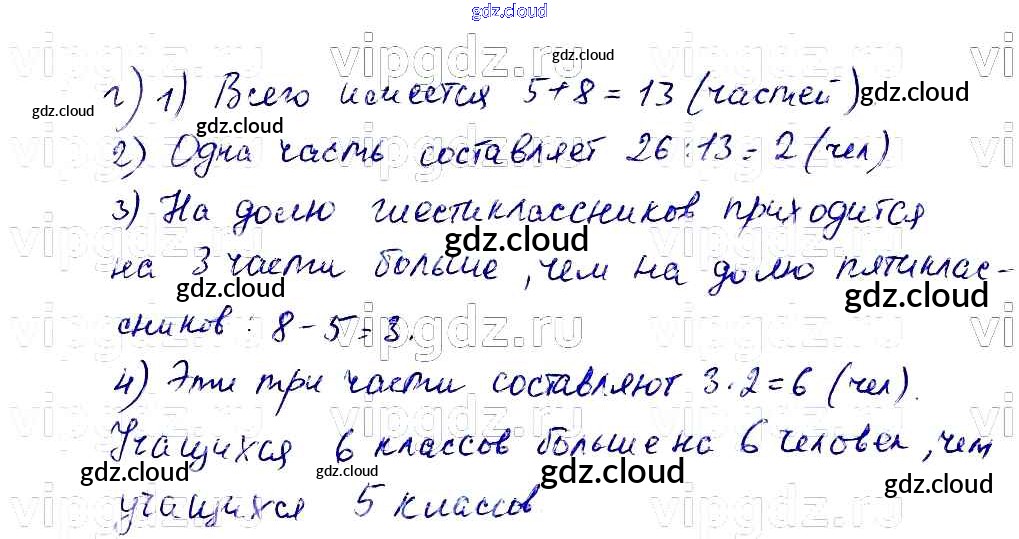 gdz.cloud
г) 1) Всего имеется 5+8=13 (частей)
2) Одна часть составляет 26:13=2 (чел)
3) На долю шестиклассников приходится
на 3 части больше, чем на долю пятиклас-
сников: 8-5=3.
4) Эти три части составляют 3·2=6 (чел).
Учащихся 6 классов больше на 6 человек, чем
учащихся 5 классов